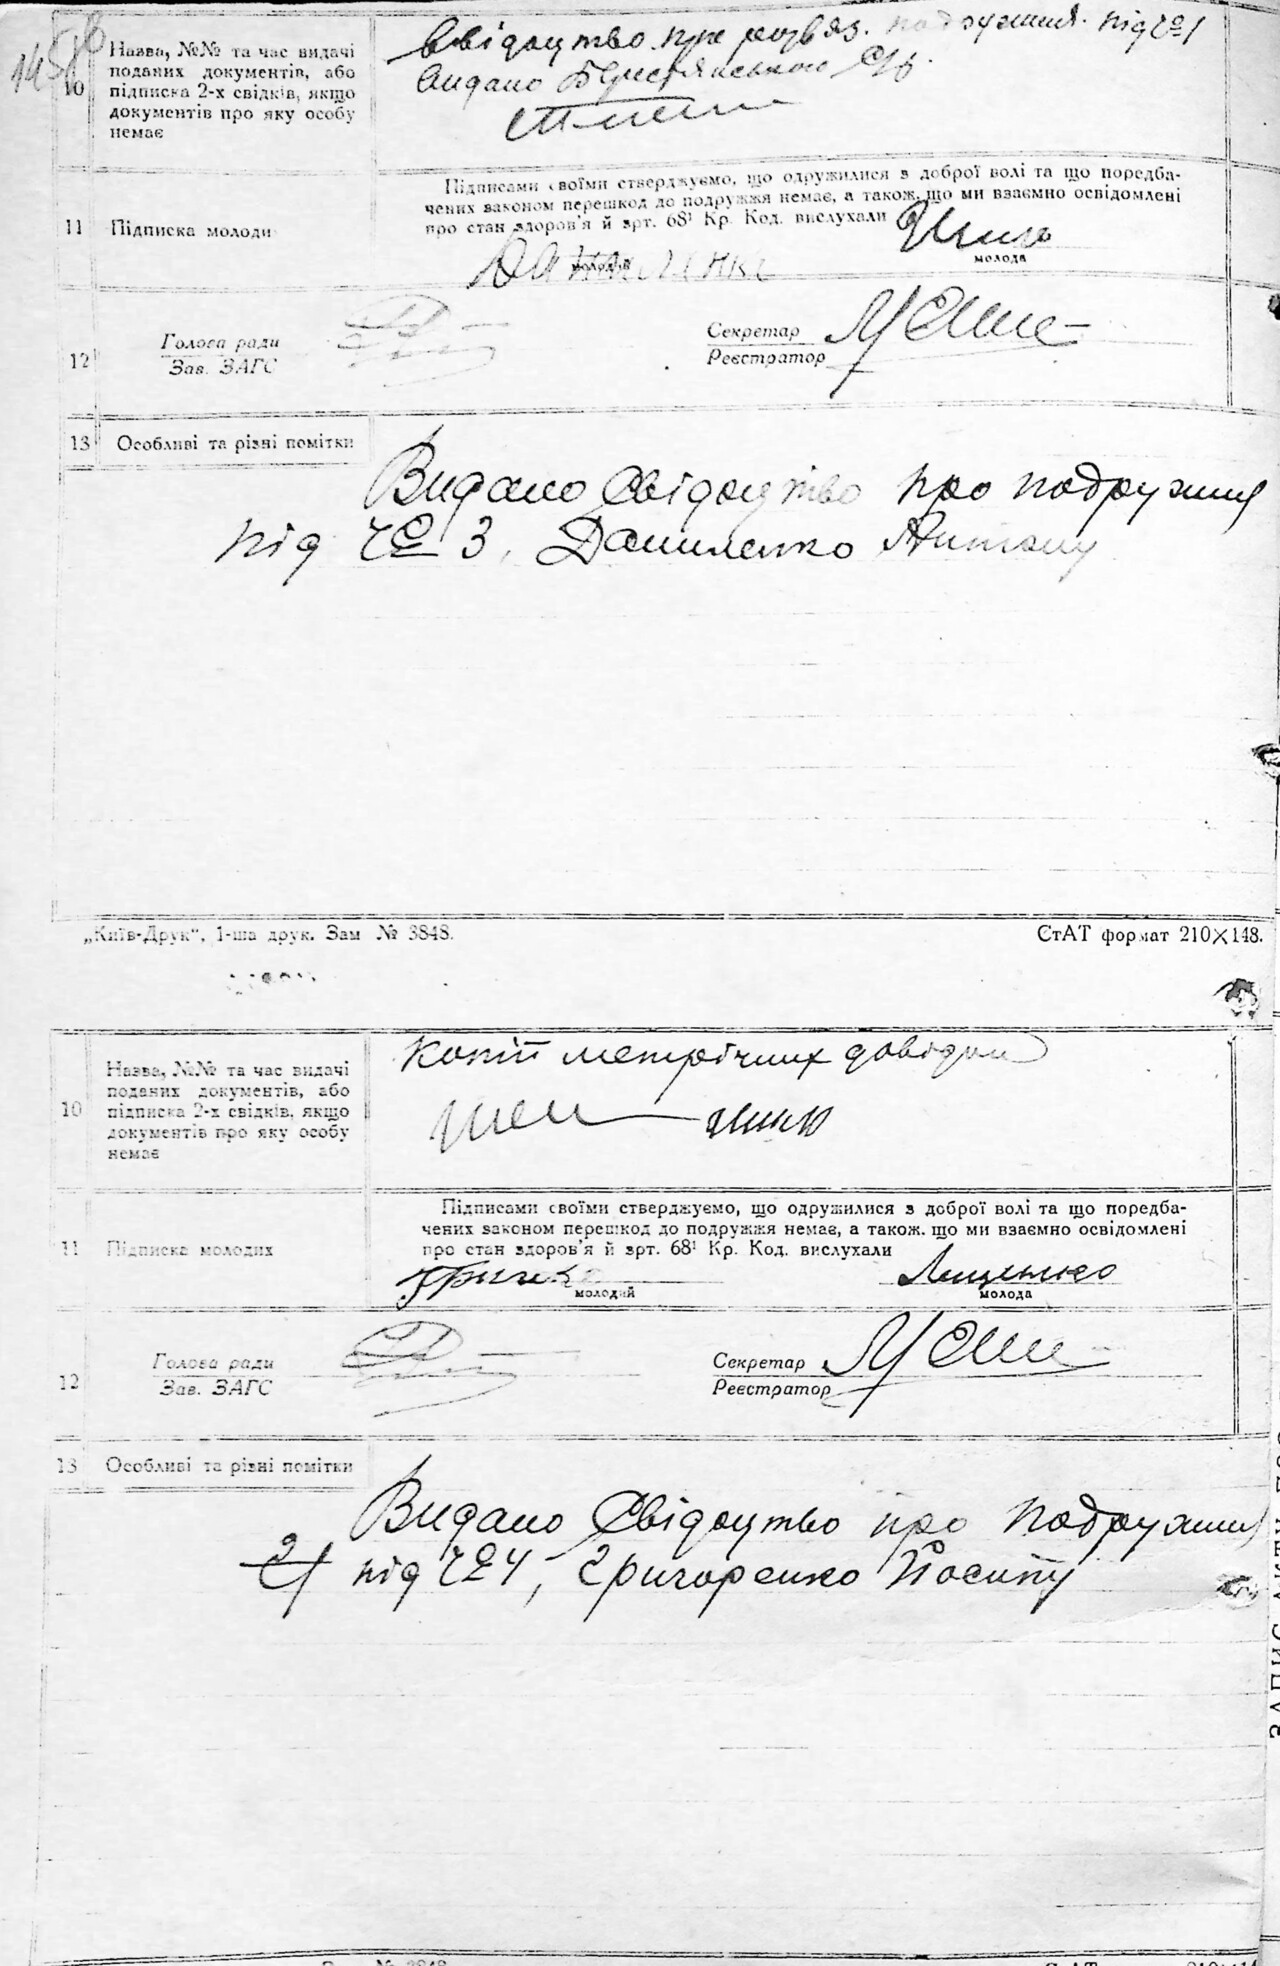 145
10
Назва, №№ та час видачі
поданих документів, або
підписка 2-х свідків, якщо
документів про яку особу
немає
Свідоцтво про розвяз. подружжя. під Ч 1
Видано
11
Підписка молоди
Підписами своїми стверджуємо, що одружилися з доброї волі та що поредба-
чених законом перешкод до подружжя немає, а також, що ми взаємно освідомлені
про стан здоров'я й арт. 68¹ Кр. Код. вислухали
молодий
молода
12
Голова ради
Зав. ЗАГС
Секретар
Реєстратор
13
Особливі та різні помітки
Видано Свідоцтво про подружжя
під Ч 3, Даниленко Антону
„Київ-Друк“, 1-ша друк. Зам № 3848.
СтАТ формат 210×148.
10
Назва, №№ та час видачі
поданих документів, або
підписка 2-х свідків, якщо
документів про яку особу
немає
Копії метрічних довідок
11
Підписка молодих
Підписами своїми стверджуємо, що одружилися з доброї волі та що поредба-
чених законом перешкод до подружжя немає, а також. що ми взаємно освідомлені
про стан здоров'я й арт. 68¹ Кр. Код. вислухали
Лященко
молодий
молода
12
Голова ради
Зав. ЗАГС
Секретар
Реєстратор
13
Особливі та різні помітки
Видано Свідоцтво про подружжя
під Ч 4, Григоренко Йосипу
№ 3848